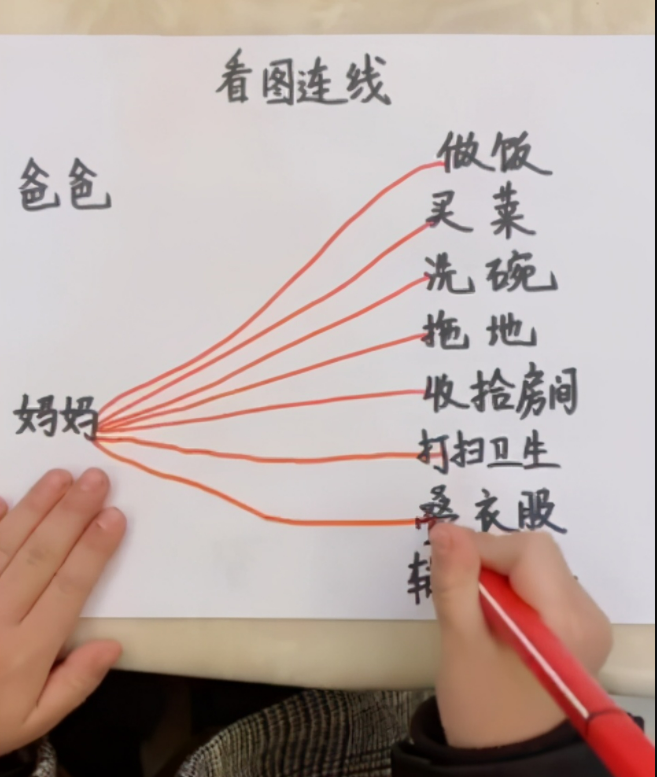 看图连线
爸爸
做饭
买菜
洗碗
拖地
收拾房间
打扫卫生
妈妈
衣服